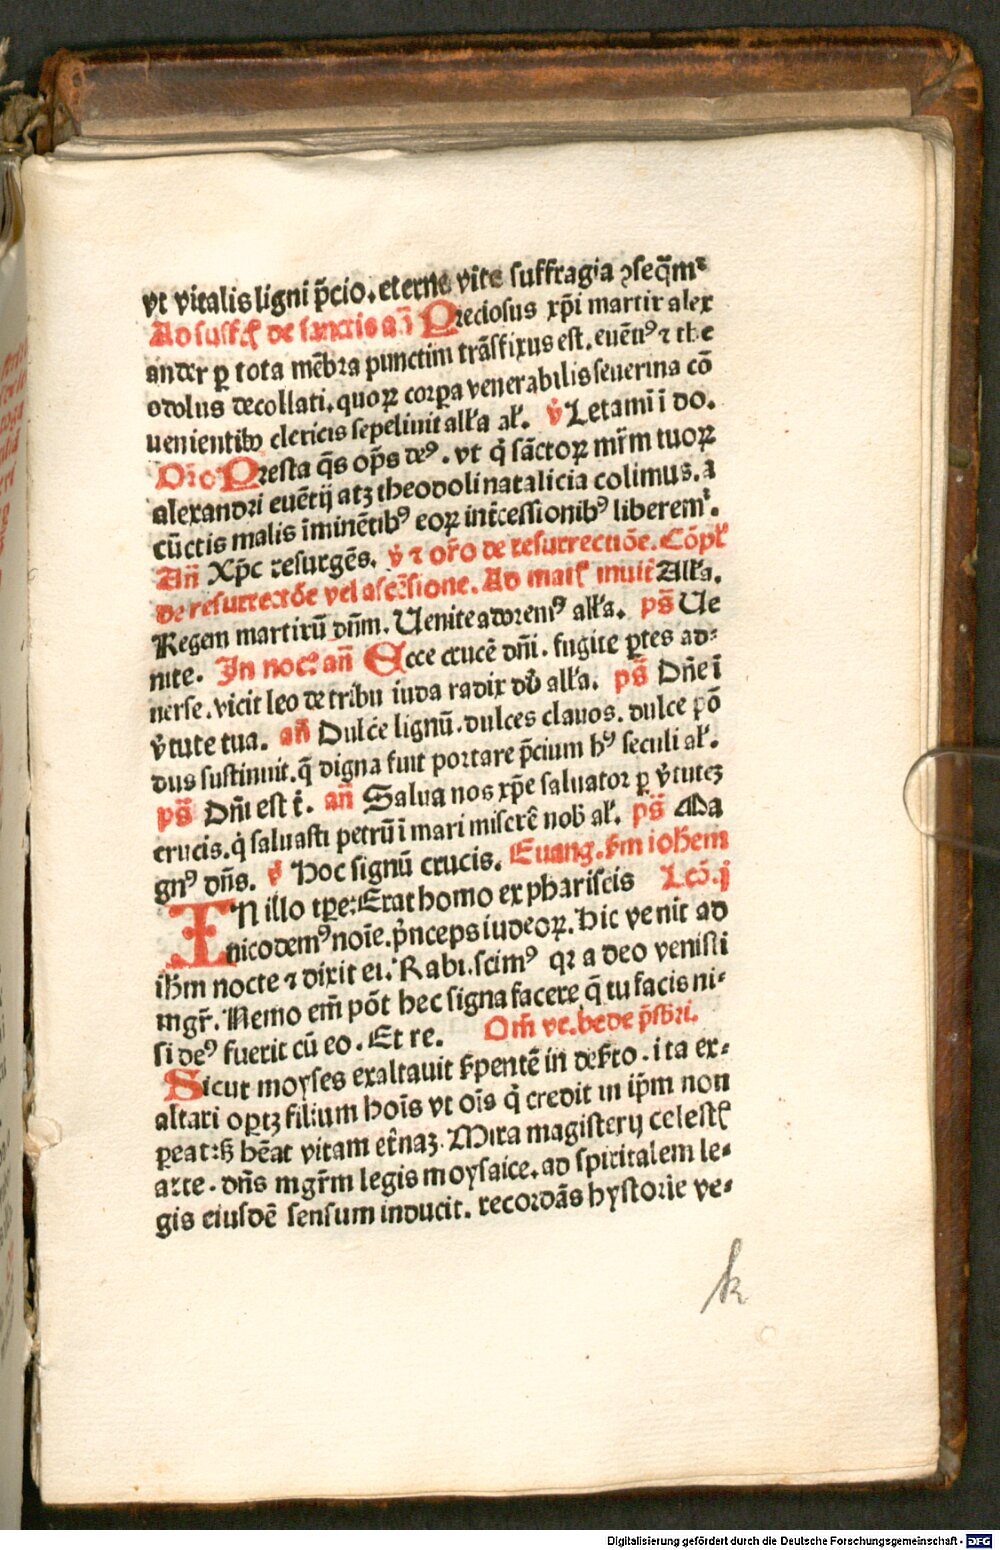 vt vitalis ligni p̄cio. eterne vite suffragia ꝯseq̄mᷣ
Ad suffꝝ de sanctis añ Preciosus xp̄i martir alex
ander ꝑ tota mēbra punctim trāsfixus est. euētiꝰ ⁊ the
odolus decollati. quoꝝ corpa venerabilis seuerina cō
uenientibꝰ clericis sepeliuit alła ał. v̓ Letamī i do.
Or̄o Presta q̄s op̄s deꝰ. vt q̓ sāctoꝝ mr̄m tuoꝝ
alexandri euētij atꝫ theodoli natalicia colimus. a
cūctis malis īminētibꝰ eoꝝ int̄cessionibꝰ liberemᷣ.
Añ Xp̄c resurgēs. v̓ ⁊ or̄o de resurrectiōe. Cōpł
de resurrectōe vel ascēsione. Ad mat̄ inuit̄ Alła.
Regem martirū dñm. Venite adoremꝰ alła. ps̄ Ve
nite. In noc̄. añ Ecce crucē dñi. fugite ꝑtes ad-
uerse. vicit leo de tribu iuda radix dd̄ alła. ps̄ Dñe ī
v̓tute tua. añ Dulce lignū. dulces clauos. dulce pō
dus sustinuit. q̄ digna fuit portare p̄cium hꝰ seculi ał.
ps̄ Dñi est t̄. añ Salua nos xp̄e saluator ꝑ v̓tuteꝫ
crucis. q̓ saluasti petrū i mari miserē nob̄ ał. ps̄ Ma
gnꝰ dñs. v̓ Hoc signū crucis. Euang. s̄m iohem
IN illo tꝑe: Erat homo ex phariseis Lcō. j
nicodemꝰ noīe. p̓nceps iudeoꝝ. Hic venit ad
ihm nocte ⁊ dixit ei. Rabi. scimꝰ qꝛ a deo venisti
mgr̄. Nemo em̄ pōt hec signa facere q̄ tu facis ni-
si deꝰ fuerit cū eo. Et re. Om̄ vē. bede p̄sbri.
Sicut moyses exaltauit s̄pentē in des̄to. ita ex-
altari oportꝫ filium hoīs vt oīs q̓ credit in ip̄m non
ꝑeat: sꝫ hēat vitam et̄naꝫ. Mira magisterij celestꝭ
arte. dñs mgr̄m legis moysaice. ad spiritalem le-
gis eiusdē sensum inducit. recordās hystorie ve-
k
Digitalisierung gefördert durch die Deutsche Forschungsgemeinschaft - DFG